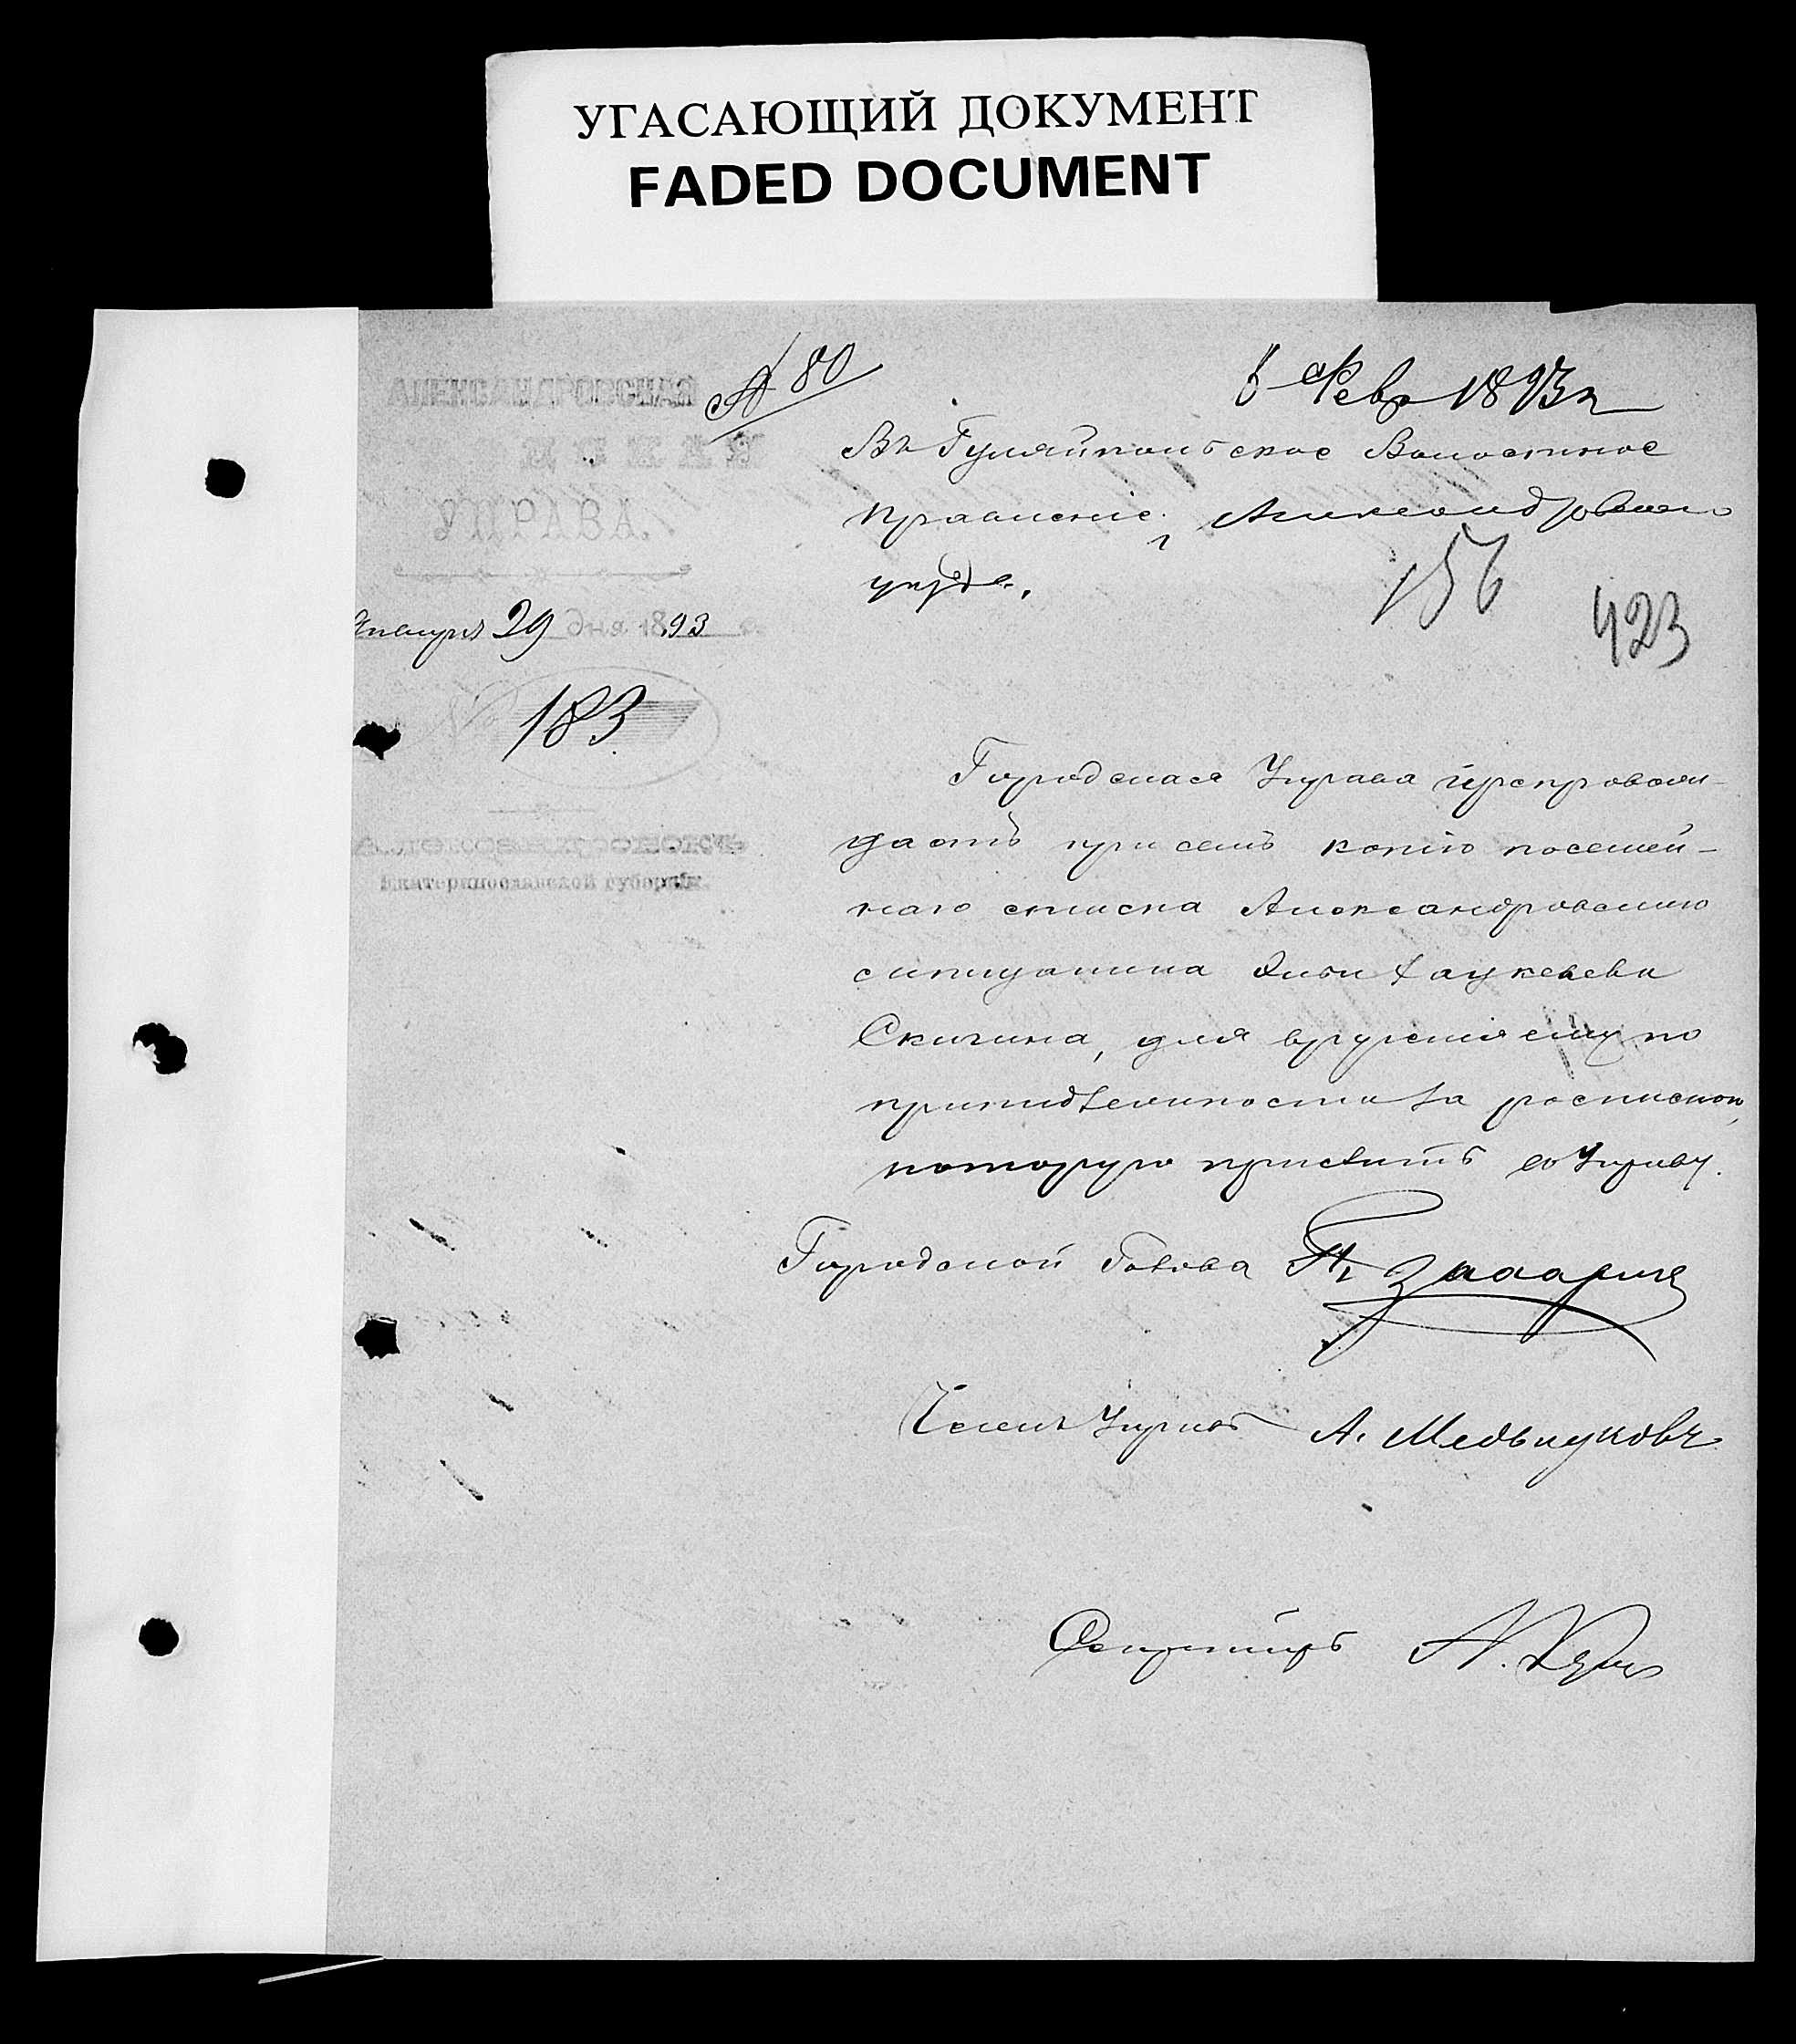 УГАСАЮЩИЙ ДОКУМЕНТ
FADED DOCUMENT
АЛЕКСАНДРОВСКАЯ
УПРАВА.
Января 29 дня 1893 г.
№ 183
Александровскъ
Екатеринославской губерніи.
№ 80
6 Февр 1893 г
Въ Гуляйпольское Волостное
Правленіе, Александровскаго
уезда.
156
423
Городская Управа препровож-
даетъ при семъ копію посемей-
наго списка Александровскаго
Скигина, для врученія ему по
принадлежности за роспискою,
которую прислать въ Управу.
Городской Голова
Членъ Управы А.
Секретарь А.